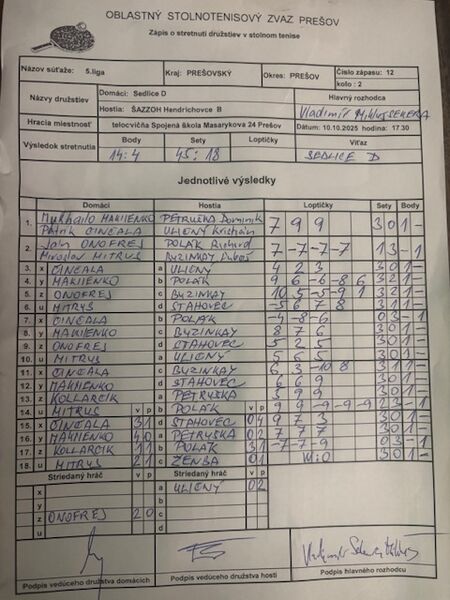 OBLASTNÝ STOLNOTENISOVÝ ZVÄZ PREŠOV
Zápis o stretnutí družstiev v stolnom tenise
Názov súťaže: 5.liga Kraj: PREŠOVSKÝ Okres: PREŠOV Číslo zápasu: 12
kolo : 2
Názvy družstiev Domáci: Sedlice D Hlavný rozhodca
Hostia: ŠAZZOH Hendrichovce B Vladimír
Hracia miestnosť telocvičňa Spojená škola Masarykova 24 Prešov Dátum: 10.10.2025 hodina: 17.30
Výsledok stretnutia Body Sety Loptičky Víťaz
14:4 45:18 SEDLICE D
Jednotlivé výsledky
Domáci Hostia Loptičky Sety Body
1. Mykhailo MAKIIENKO PETRUŠKA Dominik 7 9 9 3 0 1 -
Patrik CINCALA ULIČNÝ Kristián
2. Ján ONOFREJ POLÁK Richard 7 -7 -7 -7 1 3 - 1
Miroslav MITRUS BUZINKAY Ľuboš
3. x CINCALA a ULIČNÝ 4 2 3 3 0 1 -
4. y MAKIIENKO b POLÁK 9 6 -6 -8 6 3 2 1 -
5. z ONOFREJ c BUZINKAY 3 2 1 -
6. u MITRUS d STAHOVEC 3 1 1 -
7. x CINCALA b POLÁK -4 -8 -6 0 3 - 1
8. y MAKIIENKO c BUZINKAY 8 7 6 3 0 1 -
9. z ONOFREJ d STAHOVEC 5 2 5 3 0 1 -
10. u MITRUS a ULIČNÝ 5 6 5 3 0 1 -
11. x CINCALA c BUZINKAY 6 3 -10 8 3 1 1 -
12. y MAKIIENKO d STAHOVEC 6 6 9 3 0 1 -
13. z KOLLARCIK a PETRUŠKA 3 9 9 3 0 1 -
14. u MITRUS v p b POLÁK v p 9 9 -9 -9 2 3 - 1
15. x CINCALA 3 1 d STAHOVEC 0 4 9 7 3 3 0 1 -
16. y MAKIIENKO 4 0 a PETRUŠKA 0 2 7 7 7 3 0 1 -
17. z KOLLARCIK 1 1 b POLÁK 3 1 -7 -7 -9 0 3 - 1
18. u MITRUS 2 1 c ŽENBA 0 1 W:O 3 0 1 -
Striedaný hráč v p Striedaný hráč v p
x a ULIČNÝ 0 2
y b
z ONOFREJ 2 0 c
u d
Podpis vedúceho družstva domácich Podpis vedúceho družstva hostí Podpis hlavného rozhodcu